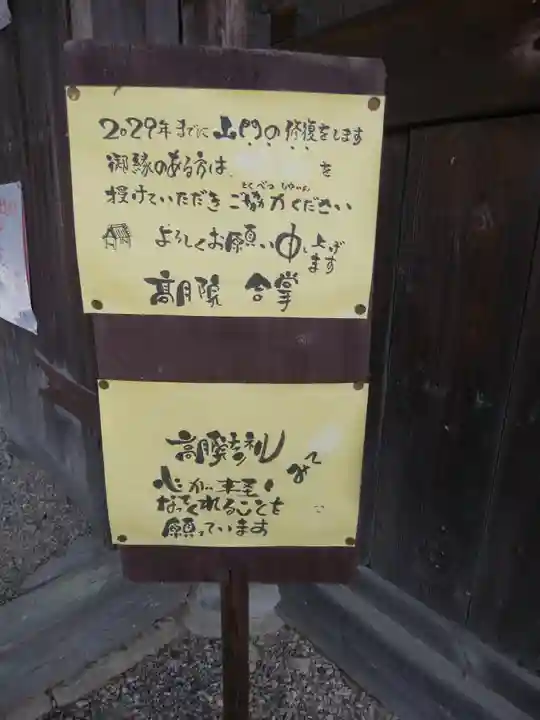 2029年までに山門の修復をします
御縁のある方は を
授けていただきご協力ください
とくべつ
よろしくお願い申し上げます
高月院 合掌
高月院
みて
心が軽く
なってくれることを
願っています